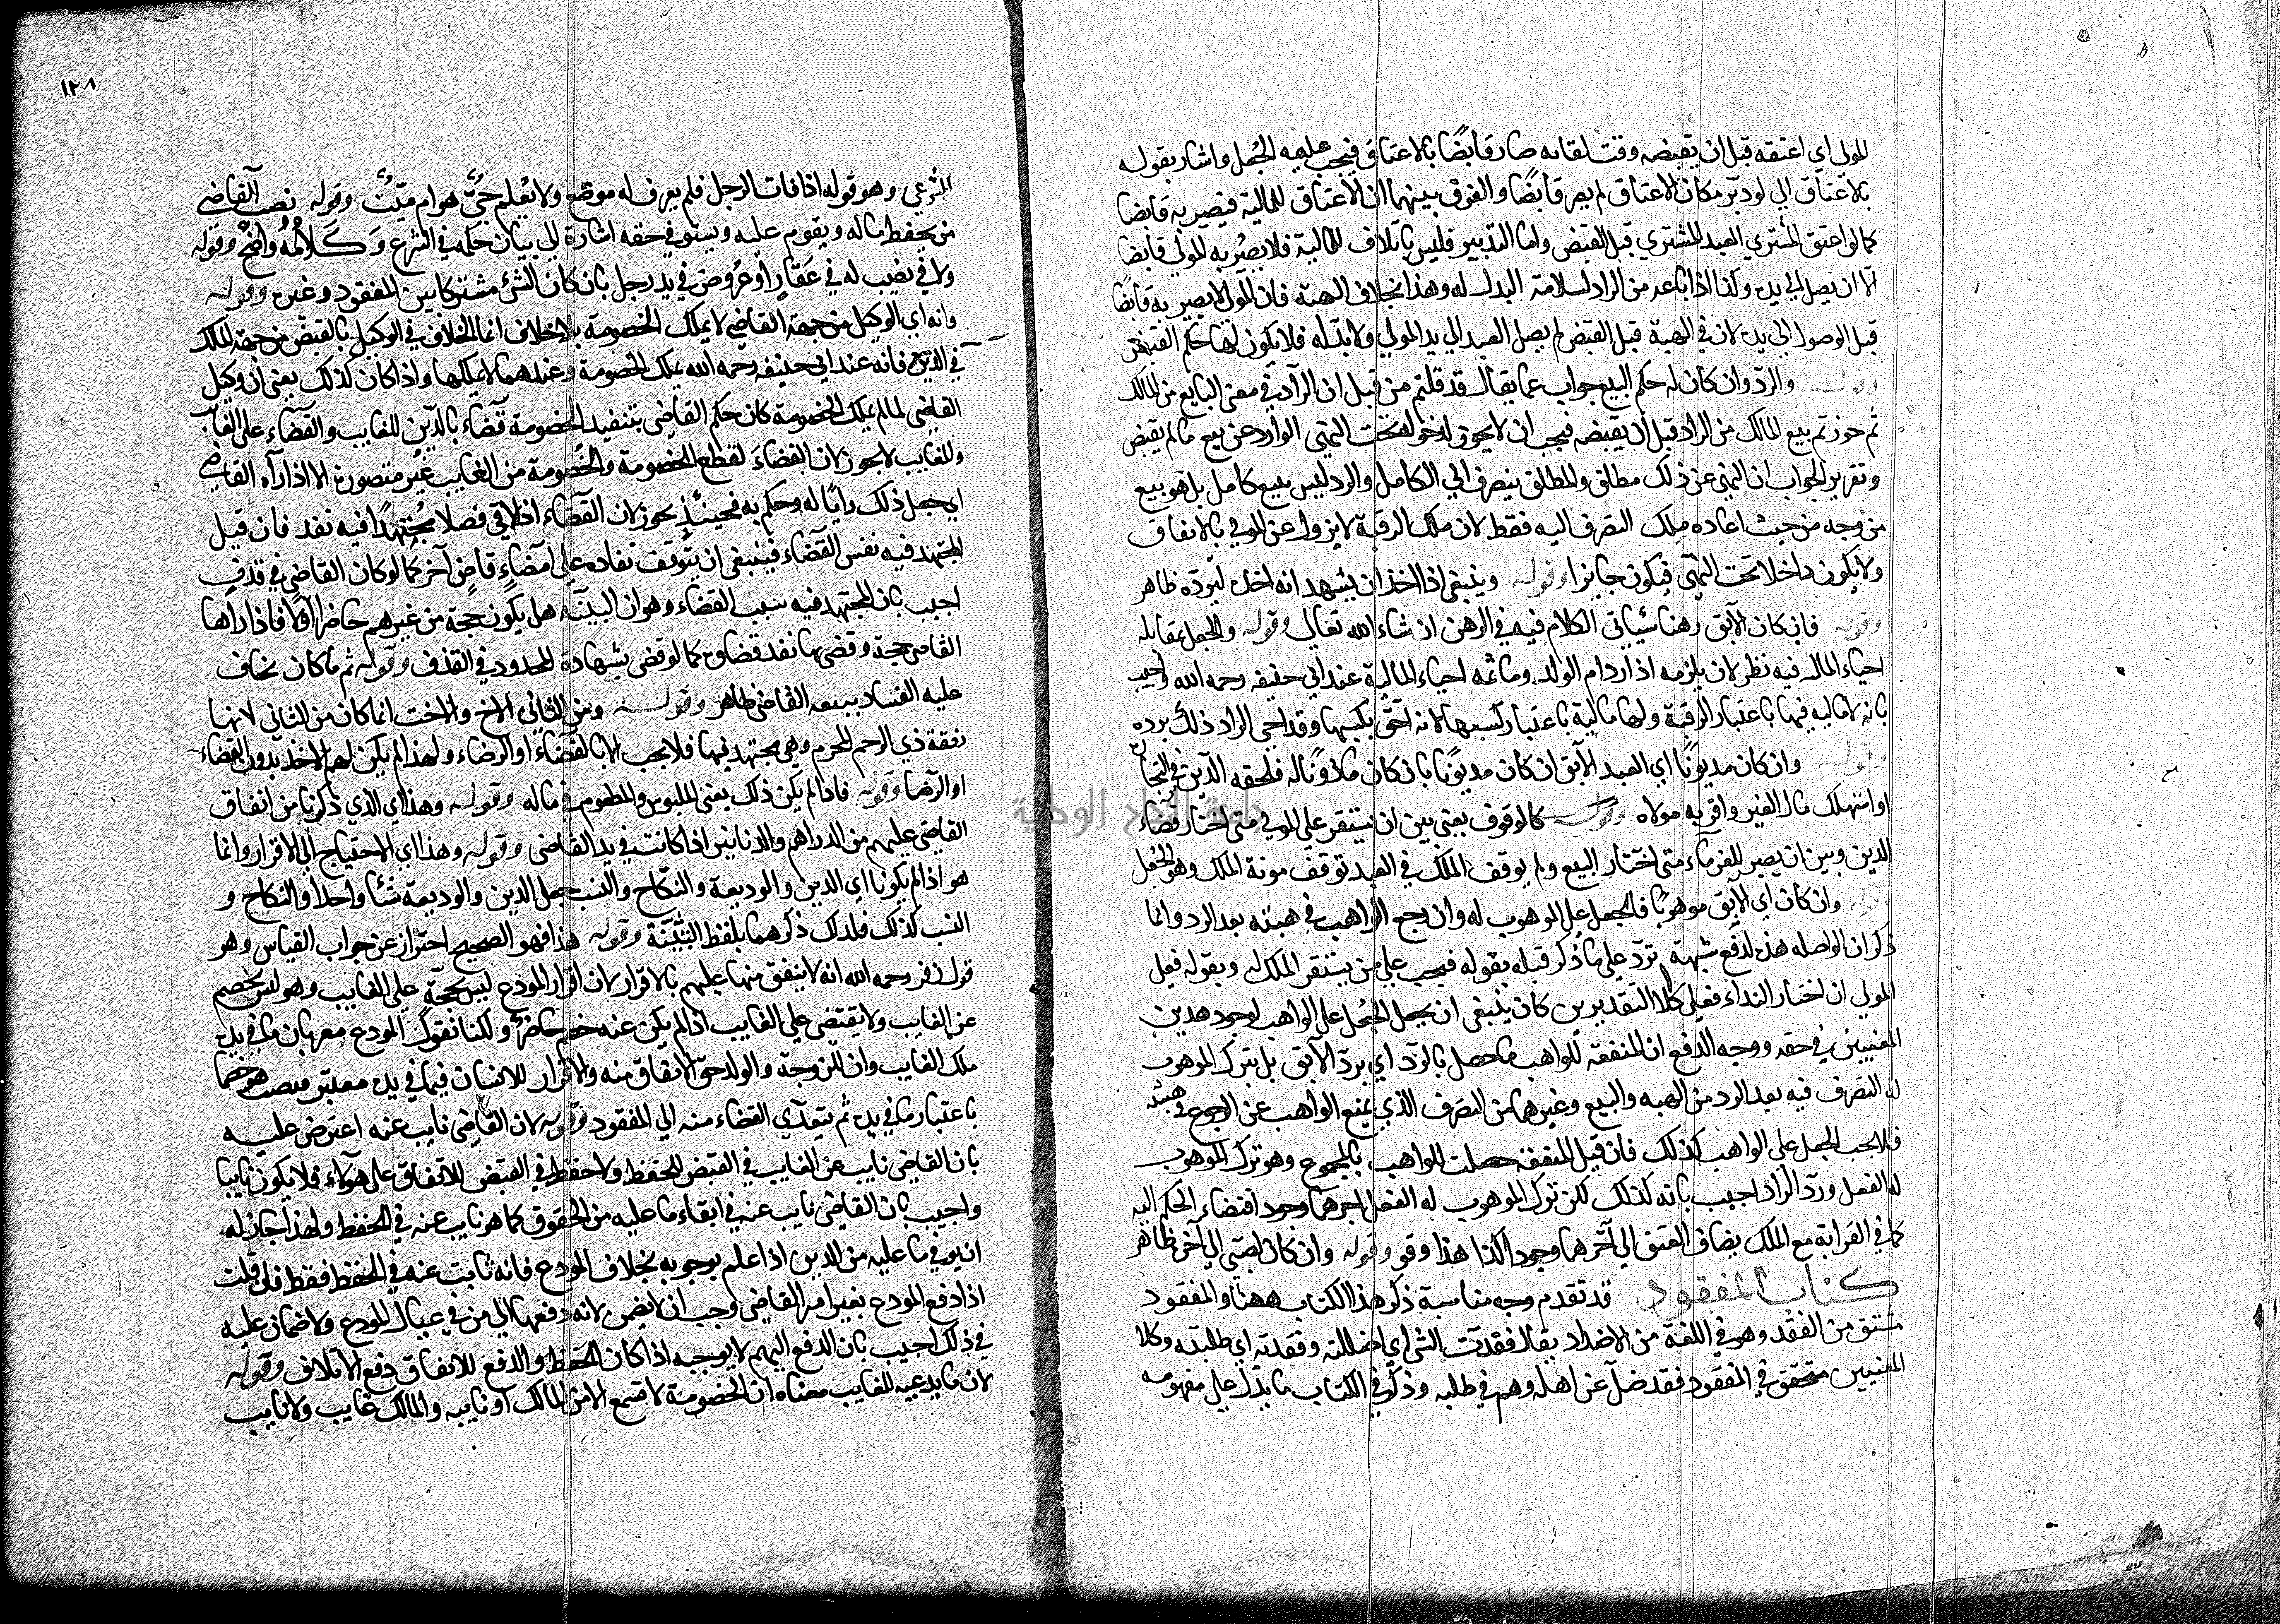 المولى اي اعتقه قبل ان يقبضه وقت لقائه صار قابضًا بالاعتاق فيجب عليه الجُعل واشار بقوله
بالاعتاق الي لو دبّر مكان الاعتاق لم يصر قابضًا والفرق بينهما ان الاعتاق للمالية فيصير به قابضا
كما لو اعتق المشتري العبد المشتري قبل القبض واما التدبير فليس باتلاف للمالية فلا يصير به المولي قابضا
الا ان يصل الي يده وكذا اذا باعه من الراد لسلامة البدل له وهذا بخلاف الهبة فان المولي لا يصير به قابضًا
قبل الوصول الي يده لان في الهبة قبل القبض لم يصل العبد الي يد المولي ولا بدله فلا يكون لها حكم القبض
وقوله والردّ وان كان له حكم البيع جواب عما يقال قد قلتم من قبل ان الرادّ في معنى البايع من المالك
ثم جوزتم بيع المالك من الراد قبل ان يقبضه فيجب ان لا يجوز لدخوله تحت النهي الوارد عن بيع ما لم يقبض
وتقرير الجواب ان النهي عن ذلك مطلق والمطلق ينصرف الي الكامل والرد ليس ببيع كامل بل هو بيع
من وجه من حيث اعاده ملك التصرف اليه فقط لان ملك الرقبة لا يزول عن المولي بالاتفاق
ولا يكون داخلا تحت النهي فيكون جايزا وقوله وينبغي اذا اخذ ان يشهد انه اخذه ليردّه ظاهر
وقوله فان كان الآبق رهنا سيأتي الكلام فيه في الرهن ان شاء الله تعالى وقوله والجعل بمقابلة
احياء المالية فيه نظر لان يلزمه اذا رد ام الولد وما ثمه احياء المالية عند ابي حنيفه رحمه الله واجيب
بانه لا مالية فيها باعتبار الرقبة ولها مالية باعتبار كسبها لانه احق بكسبها وقد احيي الراد ذلك برده
وقوله وان كان مديونًا اي العبد الآبق ان كان مديونًا بان كان ماذونًا له فلحقه الدّين في التجارة
او استهلك مال الغير واقر به مولاه وقوله كالموقوف يعني بين ان يستقر علي المولي متى اختار قضاء
الدين وبين ان يصير للغرماء متى اختار البيع ولم يوقف الملك في العبد توقف مونة الملك وهو الجُعل
وقوله وان كان اي الآبق موهوبًا فالجعل علي الموهوب له وان رجع الواهب في هبته بعد الرد وانما
ذكر ان الواصله هذه لدفع شبهة تردّ علي ما ذكر قبله بقوله فيجب علي من يستقر الملك له وبقوله فعلي
المولي ان اختار الفداء فعلي كلا التقديرين كان ينبغي ان يجعل الجُعل علي الواهب لوجود هدين
المعنيين في حقه ووجه الدفع ان المنفعة للواهب ما حصل بالردّ اي بردّ الآبق بل بترك الموهوب
له التصرف فيه بعد الرد من الهبه والبيع وغيرهما من التصرف الذي يمنع الواهب عن الرجوع في هبته
فلا يجب الجعل علي الواهب كذلك فان قيل المنفعة حصلت للواهب بالمجموع وهو ترك الموهوب
له الفعل وردّ الراد اجيب بانه كذلك لكن ترك الموهوب له الفعل اخرهما وجود افتضاء الحكم اليه
كما في القرابة مع الملك يضاف العتق الي آخرهما وجود اكذا هذا وقوله وان كان لصبّي الي آخره ظاهر
كتاب المفقود قد تقدم وجه مناسبة ذكر هذا الكتاب ههنا والمفقود
مشتق من الفقد وهو في اللغة من الاضداد يقال فقدت الشي اي اضللته وفقدته اي طلبته وكلا
المعنيين متحقق في المفقود فقد ضل عن اهله وهم في طلبه وذكر في الكتاب ما يدل علي مفهومه
١٢٨
الشرعي وهو قوله اذا فات الرجل فلم يعرف له موضع ولا يُعلم حيّ هو ام ميّتٌ وقوله نصب القاضي
من يحفظ ماله ويقوم عليه ويستوفي حقه اشارة الي بيان حكمه في الشرع وكلامُهُ واضح وقوله
ولا في نصيب له في عَقَارٍ او عُروض في يد رجل بان كان الشئ مشتركا بين المفقود وغيره وقوله
وانه اي الوكيل من جهة القاضي لا يملك الخصومة بلا خلاف انما الخلاف في الوكيل بالقبض من جهة المالك
في الدين فانه عند ابي حنيفه رحمه الله يملك الخصومة وعندهما لا يملكها واذا كان كذلك يعنى ان وكيل
القاضي لما لم يملك الخصومة كان حكم القاضي بتنفيد الخصومة قضاء بالدّين للغايب والقضاء على الغايب
وللغايب لا يجوز لان القضاء لقطع الخصومة والخصومة من الغايب غير متصورة الا اذا رآه القاضي
اي جعل ذلك رايًا له وحكم به فحينئذٍ يجوز لان القضاء اذا لاقى فصلا مجتهدًا فيه نفد فان قيل
المجتهد فيه نفس القضاء فينبغي ان يتوقف نفاده علي امضاء قاضٍ آخر كما لو كان القاضي في قدفٍ
اجيب بان المجتهد فيه سبب القضاء وهو ان البينة هل يكون حجة من غير خصم حاضر او لا فاذا راها
القاضي حجة وقضى بها نفد قضاوه كما لو قضى بشهادة المحدود في القذف وقوله ثم ما كان يخاف
عليه الفساد يبيعه القاضي ظاهر وقوله ومن الثاني الاخ والاخت انما كان من الثاني لانها
نفقة ذي الرحم المحرم وهي مجتهد فيها فلا يجب الا بالقضاء او الرضاء ولهذا لم يكن لهم الاخد بدون القضاء
او الرضا وقوله فاذا لم يكن ذلك يعنى الملبوس والمطعوم في ماله وقوله وهذا اي الذي ذكرنا من انفاق
القاضي عليهم من الدراهم والدنانير اذا كانت في يد القاضي وقوله وهذا اي الاحتياج الي الاقرار وانما
هو اذا لم يكونا اي الدين والوديعة والنكاح والنسب جعل الدين والوديعة شئا واحدا والنكاح و
النسب كذلك فلدلك ذكرهما بلفظ التثنية وقوله هذا فهو الصحيح احتراز عن جواب القياس وهو
قول زفر رحمه الله انه لا ينفق منها عليهم بالاقرار لان اقرار المودع ليس بحجة علي الغايب وهو ليس بخصم
عن الغايب ولا يقتضي علي الغايب اذا لم يكن عنه خصم حاضر ولكنا نقول المودع معر بان ما في يده
ملك الغايب وان للزوجة والولد حق الانفاق منه والاقرار للانسان فيما في يده معتبر فينصب هو خصما
باعتبار ما في يده ثم يتعدي القضاء منه الي المفقود وقوله لان القاضي نايب عنه اعترض عليه
بان القاضي نايب عن الغايب في القبض للحفظ ولا حفظ في القبض للانفاق علي هولاء فلا يكون نايبا
واجيب بان القاضي نايب عنه في ايفاء ما عليه من الحقوق كما هو نايب عنه في الحفظ ولهذا جاز له
ان يوفي ما عليه من الدين اذا علم بوجوبه بخلاف المودع فانه نايب عنه في الحفظ فقط فان قلت
اذا دفع المودع بغير امر القاضي وجب ان لا يضمن لانه دفعها الي من في عيال المودع ولا ضمان عليه
في ذلك اجيب بان الدفع اليهم لا يوجبه اذا كان للحفظ والدفع للانفاق دفع الاتلاف وقوله
لان ما يدعيه للغايب معناه ان الخصومة لا تسمع الا من المالك او نايبه والمالك غايب ولا نايب
جامعة النجاح الوطنية